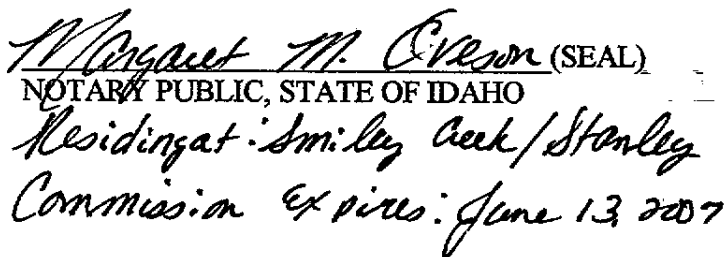 Margaret M. Oveson (SEAL)
NOTARY PUBLIC, STATE OF IDAHO
Residing at: Smiley Creek/Stanley
Commission Expires: June 13, 2007